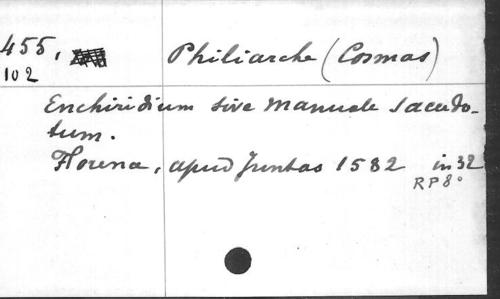 455, Philiarche (Cosmas)
102
Enchiridium sive Manuale Sacerdo-
tum.
Florence, apud Juntas 1582 in 32
RP 8°